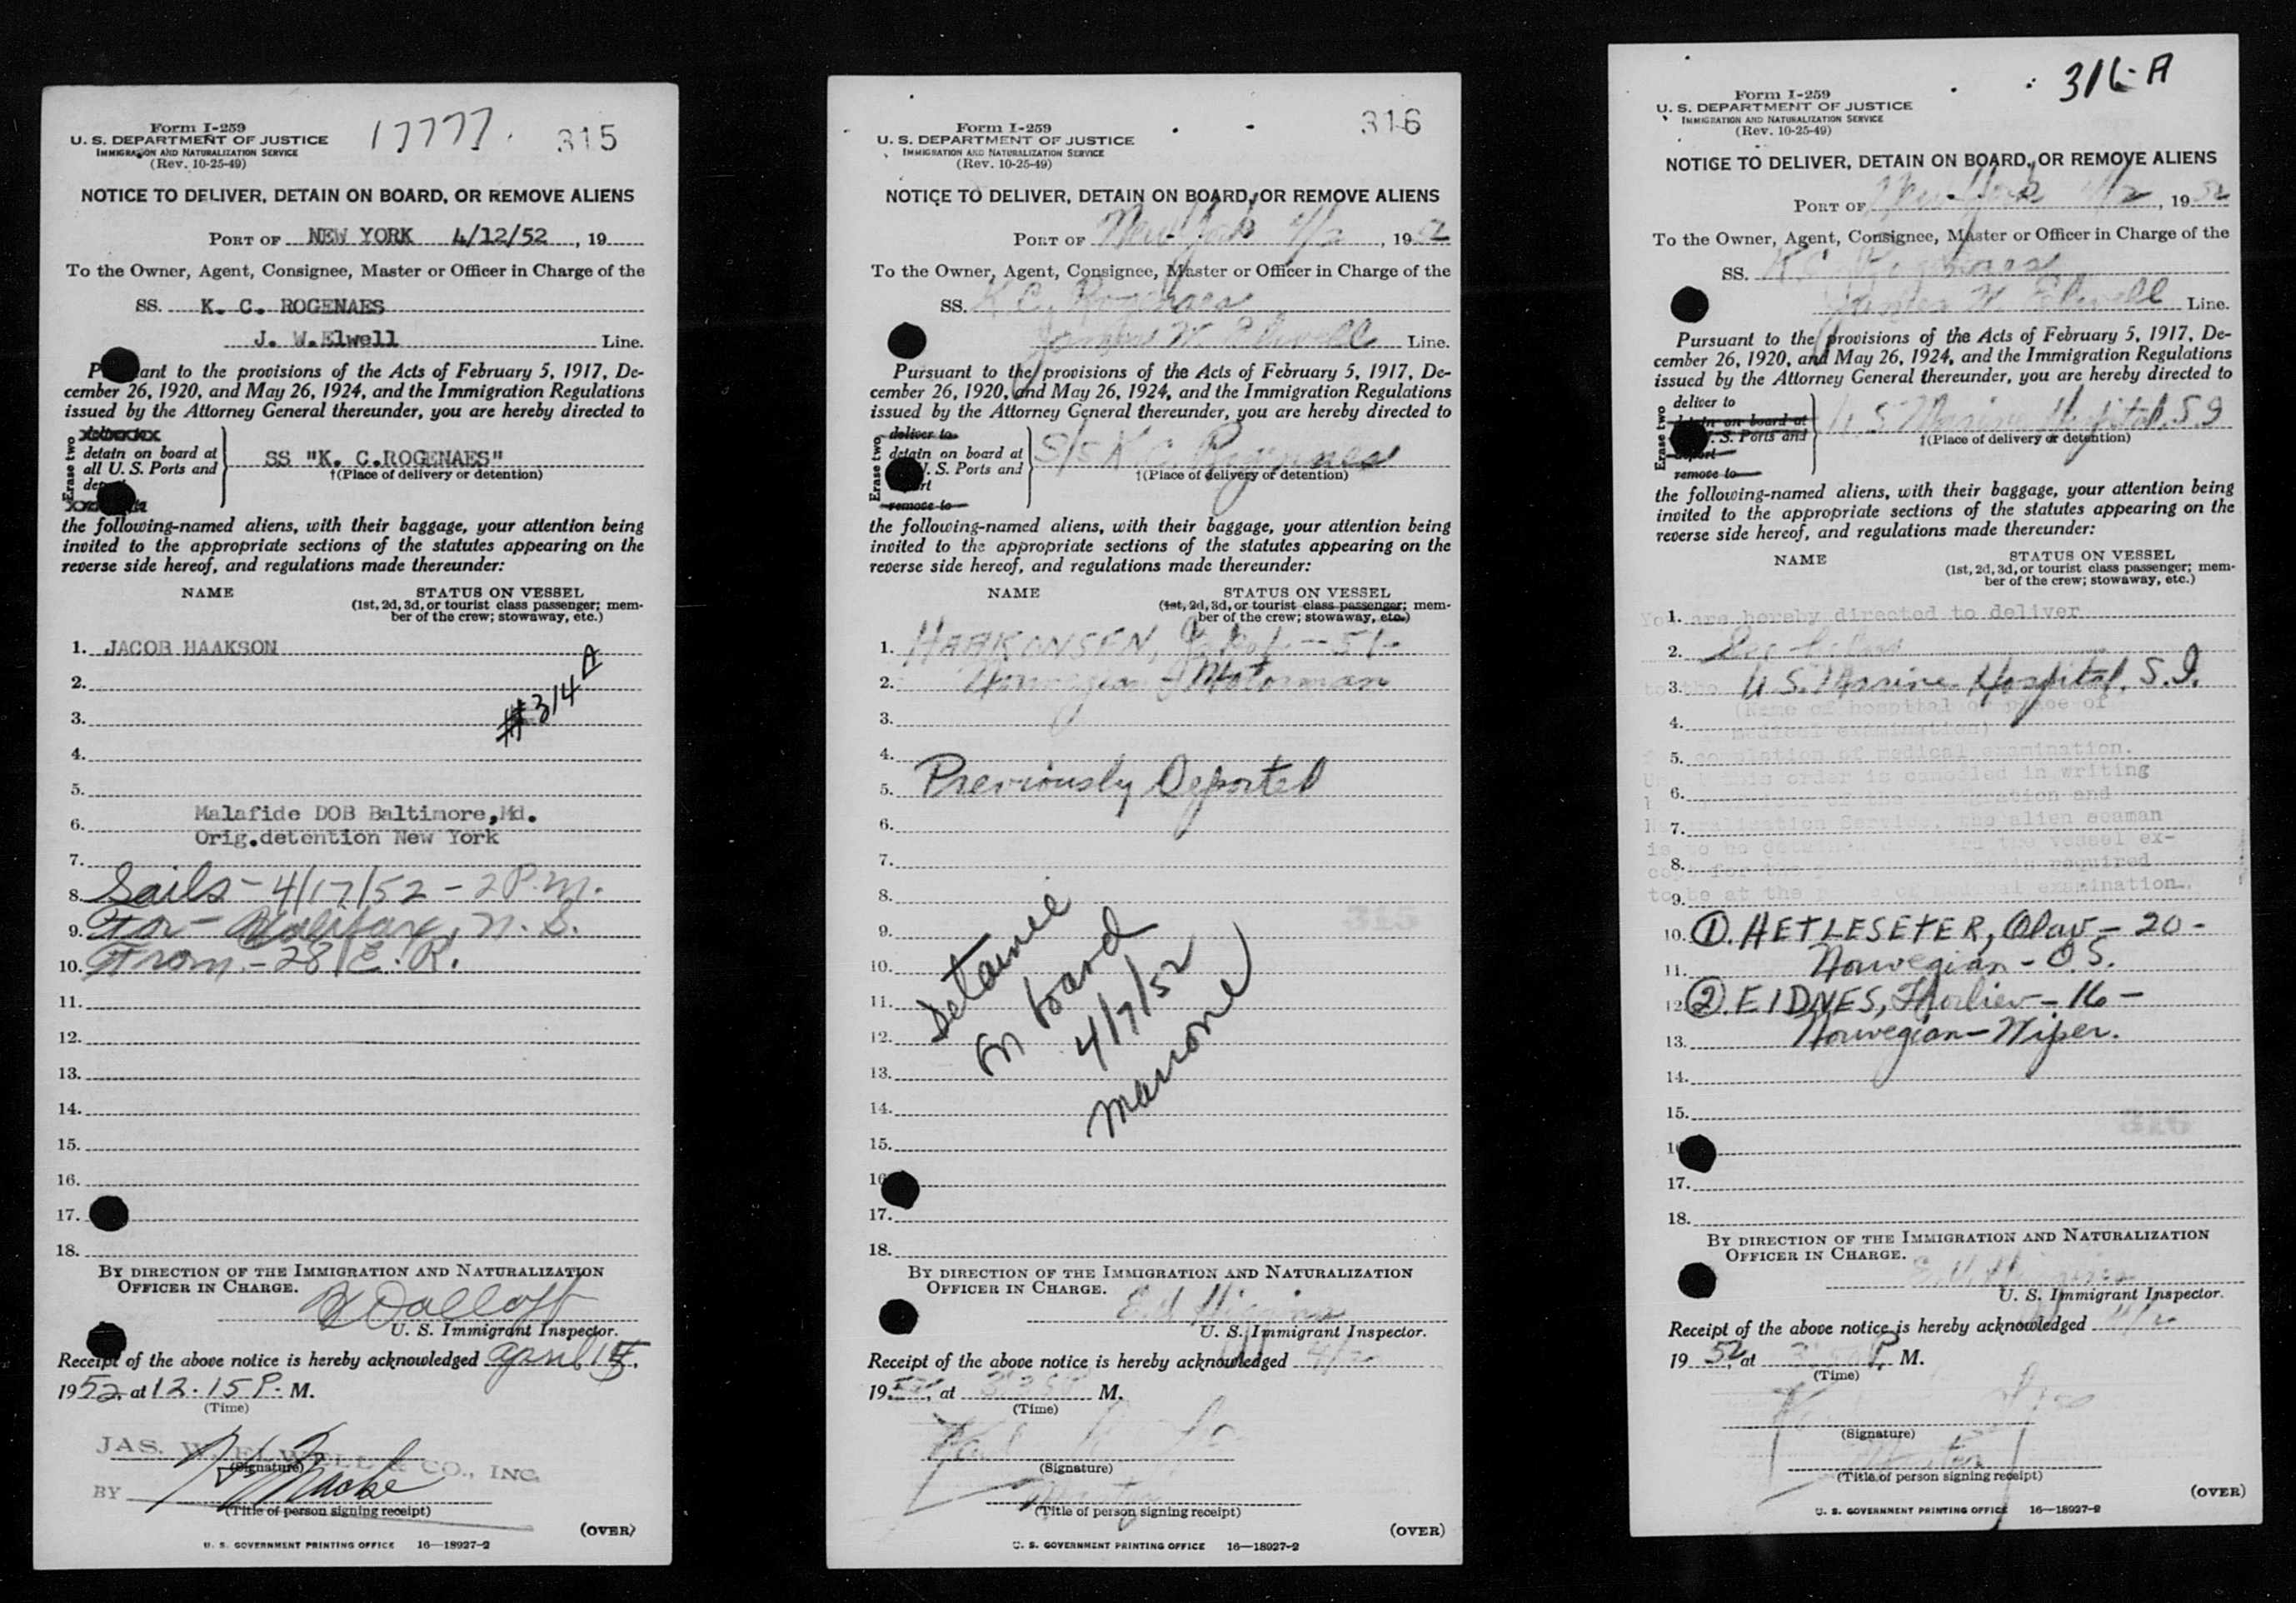 Form I-259
U. S. DEPARTMENT OF JUSTICE
IMMIGRATION AND NATURALIZATION SERVICE
(Rev. 10-25-49)
17777.
315
NOTICE TO DELIVER, DETAIN ON BOARD, OR REMOVE ALIENS
PORT OF NEW YORK 4/12/52, 19
To the Owner, Agent, Consignee, Master or Officer in Charge of the
SS. K. C. ROGENAES
J. W. Elwell Line.
to the provisions of the Acts of February 5, 1917, De-
cember 26, 1920, and May 26, 1924, and the Immigration Regulations
issued by the Attorney General thereunder, you are hereby directed to
Erase two
detain on board at
all U. S. Ports and
SS "K. C.ROGENAES"
†(Place of delivery or detention)
the following-named aliens, with their baggage, your attention being
invited to the appropriate sections of the statutes appearing on the
reverse side hereof, and regulations made thereunder:
NAME STATUS ON VESSEL
(1st, 2d, 3d, or tourist class passenger; mem-
ber of the crew; stowaway, etc.)
1. JACOB HAAKSON
2.
#314A
3.
4.
5.
Malafide DOB Baltimore, Md.
6.
Orig.detention New York
7.
8. Sails - 4/17/52 - 2 P.M.
9. For - Halifax, N. S.
10. From - 28 E. R.
11.
12.
13.
14.
15.
16.
17.
18.
BY DIRECTION OF THE IMMIGRATION AND NATURALIZATION
OFFICER IN CHARGE.
U. S. Immigrant Inspector.
Receipt of the above notice is hereby acknowledged April 15,
1952, at 12.15 P. M.
(Time)
JAS. W. ELWELL & CO., INC.
(Signature)
BY
(Title of person signing receipt)
(OVER)
U. S. GOVERNMENT PRINTING OFFICE 16—18927-2
Form I-259
U. S. DEPARTMENT OF JUSTICE
IMMIGRATION AND NATURALIZATION SERVICE
(Rev. 10-25-49)
316
NOTICE TO DELIVER, DETAIN ON BOARD, OR REMOVE ALIENS
PORT OF New York 4/2, 1952
To the Owner, Agent, Consignee, Master or Officer in Charge of the
SS. K.C. Rogenaes
James W. Elwell Line.
Pursuant to the provisions of the Acts of February 5, 1917, De-
cember 26, 1920, and May 26, 1924, and the Immigration Regulations
issued by the Attorney General thereunder, you are hereby directed to
Erase two
deliver to
detain on board at
U. S. Ports and
remove to
S/S K.C. Rogenaes
†(Place of delivery or detention)
the following-named aliens, with their baggage, your attention being
invited to the appropriate sections of the statutes appearing on the
reverse side hereof, and regulations made thereunder:
NAME STATUS ON VESSEL
(1st, 2d, 3d, or tourist class passenger; mem-
ber of the crew; stowaway, etc.)
1. HAAKONSEN, Jakob - 51 -
2. Norwegian - Motorman
3.
4.
5. Previously Deported
6.
7.
8.
9.
315
10.
11.
12.
13.
14.
15.
Detainee
on board
4/7/52
Marrone
16
17.
18.
BY DIRECTION OF THE IMMIGRATION AND NATURALIZATION
OFFICER IN CHARGE.
E.V. Higgins
U. S. Immigrant Inspector.
Receipt of the above notice is hereby acknowledged 4/2
1952, at M.
(Time)
(Signature)
Master
(Title of person signing receipt)
(OVER)
U. S. GOVERNMENT PRINTING OFFICE 16—18927-2
Form I-259
U. S. DEPARTMENT OF JUSTICE
IMMIGRATION AND NATURALIZATION SERVICE
(Rev. 10-25-49)
316-A
NOTICE TO DELIVER, DETAIN ON BOARD, OR REMOVE ALIENS
PORT OF New York 4/2, 1952
To the Owner, Agent, Consignee, Master or Officer in Charge of the
SS. K.C. Rogenaes
James W. Elwell Line.
Pursuant to the provisions of the Acts of February 5, 1917, De-
cember 26, 1920, and May 26, 1924, and the Immigration Regulations
issued by the Attorney General thereunder, you are hereby directed to
Erase two
deliver to
detain on board at
U. S. Ports and
remove to
U.S. Marine Hospital, S.I.
†(Place of delivery or detention)
the following-named aliens, with their baggage, your attention being
invited to the appropriate sections of the statutes appearing on the
reverse side hereof, and regulations made thereunder:
NAME STATUS ON VESSEL
(1st, 2d, 3d, or tourist class passenger; mem-
ber of the crew; stowaway, etc.)
1. You are hereby directed to deliver
2.
3. to the U.S. Marine Hospital, S.I.
(Name of hospital or place of
4.
medical examination)
5. completion of medical examination.
this order is canceled in writing
6.
7. Naturalization Service, the alien seaman
is to be detained vessel ex-
8. required
9. to be at the of medical examination.
10. ①. HETLESETER, Olav - 20 -
11. Norwegian - O.S.
12 ②. EIDNES, Thorliev - 16 -
13. Norwegian - Wiper.
14.
15.
316
16
17.
18.
BY DIRECTION OF THE IMMIGRATION AND NATURALIZATION
OFFICER IN CHARGE.
E.V. Higgins
U. S. Immigrant Inspector.
Receipt of the above notice is hereby acknowledged 4/2
1952, at P. M.
(Time)
(Signature)
Master
(Title of person signing receipt)
(OVER)
U. S. GOVERNMENT PRINTING OFFICE 16—18927-2